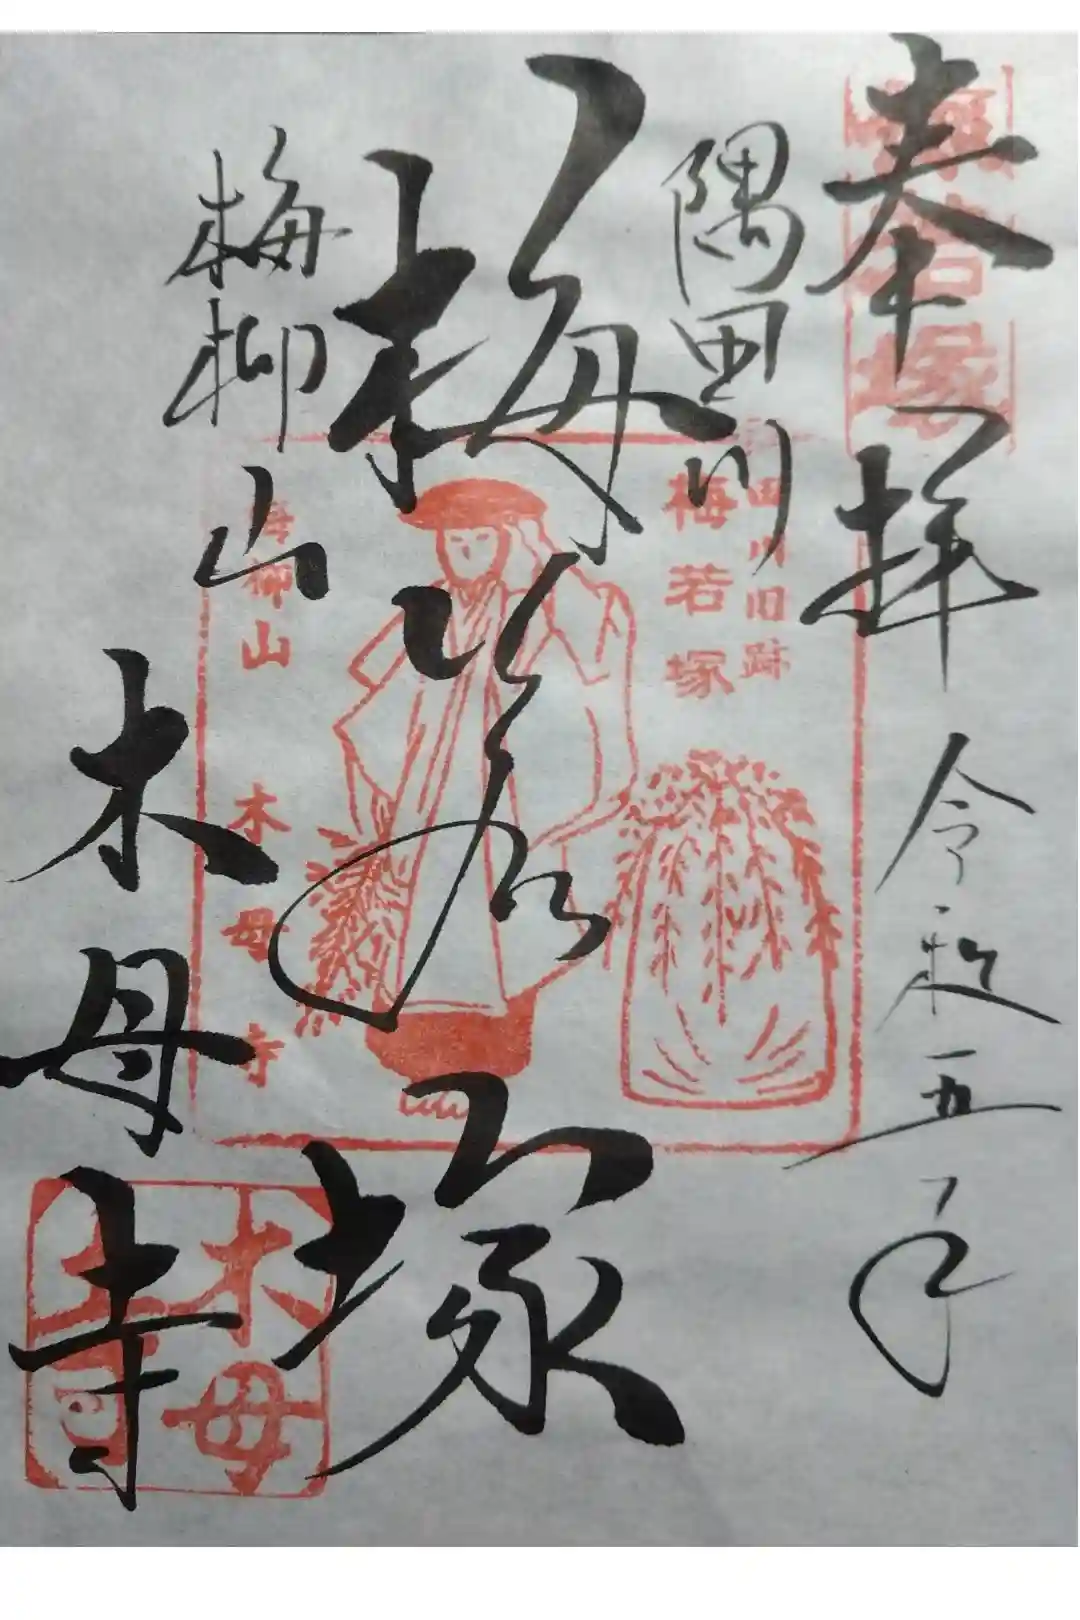 奉拝 令和五年
隅田川
梅若塚
梅柳山
木母寺
梅若塚
隅田川旧跡
梅若塚
梅柳山 木母寺
木母寺印